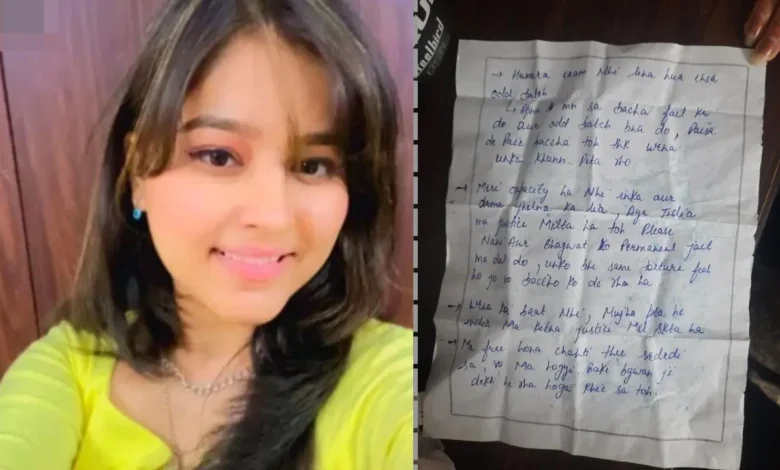 → Humara exam Nhi lena hua unsa
odd batch
↳ Apna mn sa bacha fail kr
do aur odd batch bna do, Paisa
de Paur baccha toh thk wrna
unka Khunn Peta rho.
→ Meri capacity ha Nhi inka aur
drma jhelna ka lia, Agr India
ma justice Melta ha toh Please
Nani Aur Bhagwat ko Permanent jail
ma dal do, unko bhe same torture feel
ho jo vo baccho ko de rha ha
→ ka baat Nhi, Mujha pta ha
India Ma ketna justice Mel Skta ha
→ Ma free hona chahti thee
sa, vo Ma hogyi Baki bgwan ji
dekh he rha hoga kahe sa toh.